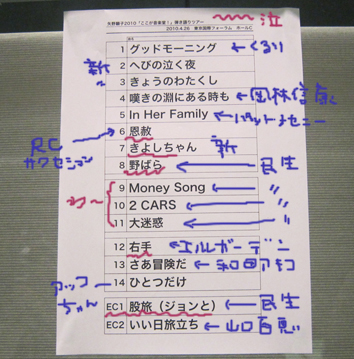 矢野顕子2010「ここが音楽堂！」弾き語りツアー 泣
2010.4.25 東京国際フォーラム ホールC
1 グッドモーニング ← くるり
新 2 へびの泣く夜
3 きょうのわたくし
4 嘆きの淵にある時も ← 岡林信康
5 In Her Family ← パットメセニー
RCサクセション 6 恩赦
7 きよしちゃん 新
8 野ばら ← 民生
わ〜 9 Money Song ← 〃
10 2 CARS ← 〃
11 大迷惑 ← 〃
12 右手 ← エルレガーデン
13 さあ冒険だ ← 和田アキコ
アッコちゃん 14 ひとつだけ
EC1 股旅（ジョンと） ← 民生
EC2 いい日旅立ち ← 山口百恵